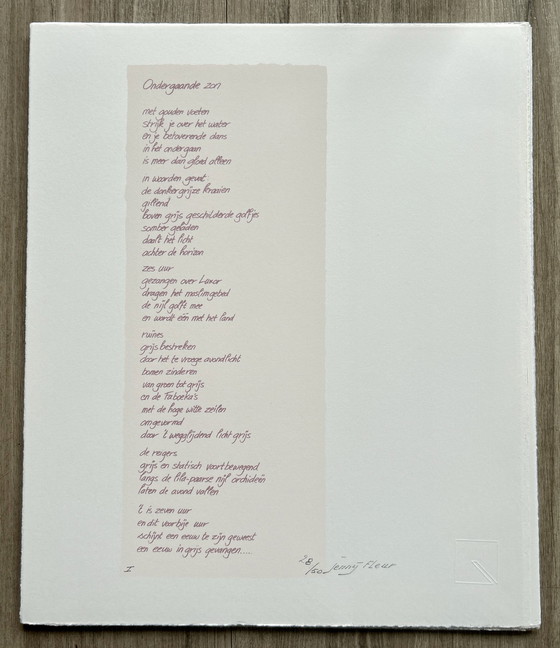 Ondergaande zon
met gouden voeten
strijk je over het water
en je betoverende dans
in het ondergaan
is meer dan gloed alleen
in woorden gevat:
de donkergrijze kraaien
gillend
boven grijs geschilderde golfjes
somber geladen
daalt het licht
achter de horizon
zes uur
gezangen over Luxor
dragen het moslimgebed
de nijl golft mee
en wordt één met het land
ruïnes
grijs bestreken
door het te vroege avondlicht
bomen zinderen
van groen tot grijs
en de Taboeka's
met de hoge witte zeilen
omgevormd
door 't wegglijdend licht grijs
de reigers
grijs en statisch voortbewegend
langs de lila-paarse nijl orchideeën
laten de avond vallen
't is zeven uur
en dit voorbije uur
schijnt een eeuw te zijn geweest
een eeuw in grijs gevangen....
I 28/50 Jenny Fleur